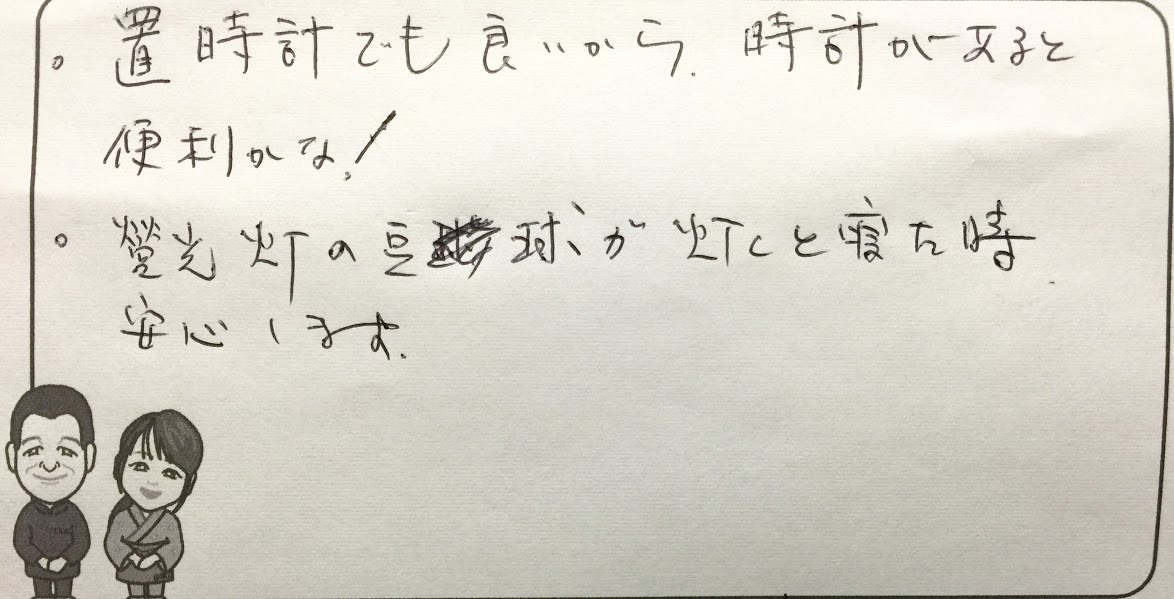 。置時計でも良いから、時計があると
便利かな!
。螢光灯の豆球が灯くと寝た時
安心します。